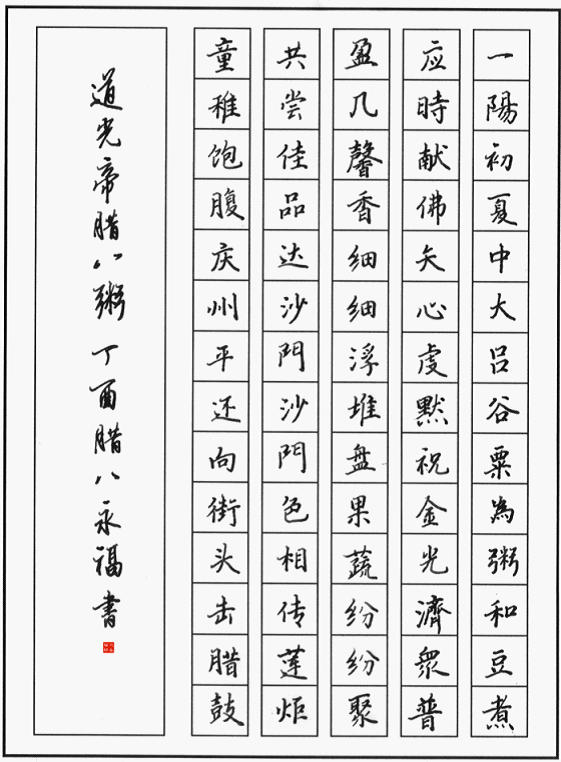 一陽初夏中大吕谷粟為粥和豆煮
应時献佛矢心虔默祝金光濟眾普
盈几馨香细细浮堆盘果蔬纷纷聚
共尝佳品达沙門沙門色相传莲炬
童稚饱腹庆州平还向街头击腊鼓
道光帝腊八粥 丁酉腊八永福書